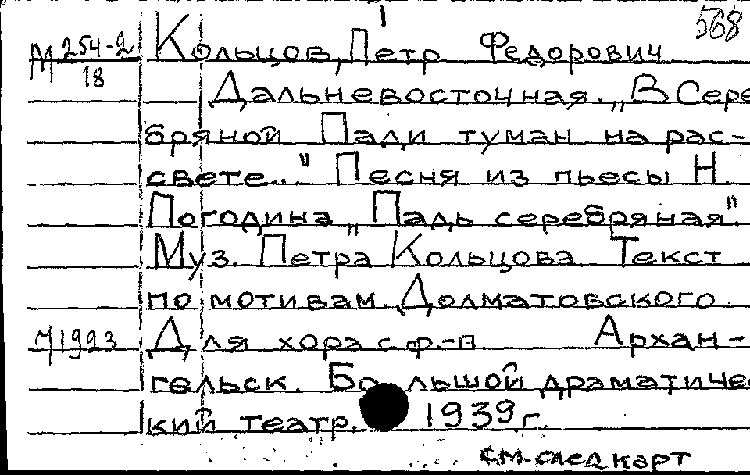 568
М 254-2 Кольцов, Петр Федорович
18
Дальневосточная. „В Сере
бряной Пади туман на рас-
свете..." Песня из пьесы Н.
Погодина „Падь серебряная"
Муз. Петра Кольцова Текст
по мотивам Долматовского
М1923 Для хора с ф.-п Архан-
гельск. Большой драматиче
кий театр. 1939 г.
см. след карт